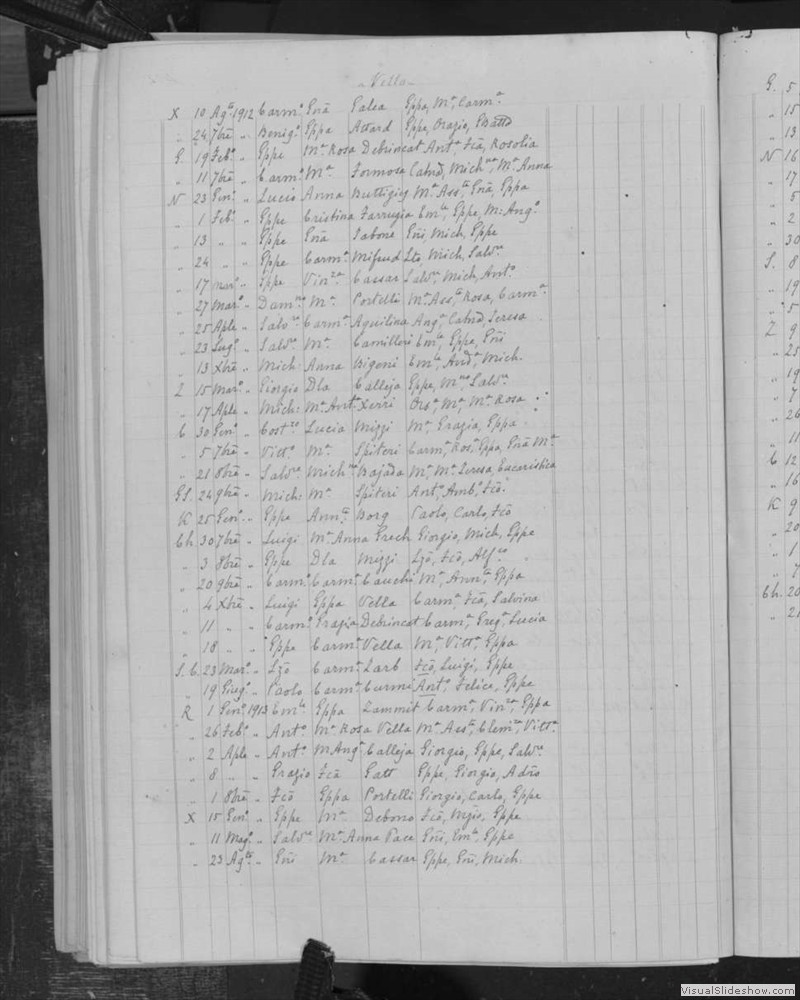 Vella
X 10 Agto 1912 Carmo Gnā Galea Gppe, Ma, Carma
" 24 7bre " Benigo Gppa Attard Gppe, Orazio, GBatta
G. 19 Febo " Gppe Ma Rosa Debrincat Anta Fcā, Rosolia
" 11 7bre " Carmo Ma Formosa Catnd, Michna, Ma Anna
N 23 Geno " Lucio Anna Buttigieg Ma Assta Gnā, Gppa
" 1 Febo " Gppe Cristina Farrugia Emla, Gppe, M: Ango
" 13 " " Gppe Gnā Sabone Gni, Mich, Gppe
" 24 " " Gppe Carma Mifsud Lto, Mich, Salvra
" 17 Marzo " Gppe Vinza Cassar Salvra, Mich, Anto
" 27 Marzo " Damno Ma Portelli Ma Assta Rosa, Carma
" 25 Aple " Salvre Carma Aquilina Anga, Catnd, Teresa
" 23 Lugo " Salvre Ma Camilleri Emla, Gppe, Gni
" 13 Xbre " Mich: Anna Bigeni Emla, Anda, Mich.
Z 15 Marzo " Giorgio Dla Calleja Gppe, Mno, Salvra
" 17 Aple " Mich: Ma Anta Xerri Orsa, Ma, Ma Rosa
C 30 Geno " Costzo Lucia Mizzi Ma Grazia, Gppa
" 5 7bre " Vitto Ma Spiteri Carma, Rosa, Gppa, Gnā Ma
" 21 8bre " Salvre Michna Bajada Ma, Ma Teresa, Eucaristica
GS. 24 9bre " Mich: Ma Spiteri Anto, Ambo, Fco
K 25 Geno " Gppe Annta Borg Paolo, Carlo, Fcō
Ch 30 7bre " Luigi Ma Anna Grech Giorgio, Mich, Gppe
" 3 8bre " Gppe Dla Mizzi Lzō, Fcō, Alfso
" 20 9bre " Carmo Carma Cauchi Ma, Annta, Gppa
" 4 Xbre " Luigi Gppa Vella Carma, Fcā, Salvina
" 11 " " Carmo Grazia Debrincat Carma, Grega, Lucia
" 18 " " Gppe Carma Vella Ma, Vitta, Gppa
S.C. 23 Marzo " Lzō Carma Zarb Fcō, Luigi, Gppe
" 19 Giugo " Paolo Carma Curmi Anto, Felice, Gppe
R 1 Geno 1913 Emle Gppa Zammit Carma, Vinza, Gppa
" 26 Febo " Anto Ma Rosa Vella Ma Assta, Clemza, Vitta
" 2 Aple " Anto M Anga Calleja Giorgio, Gppe, Salvra
" 8 " " Grazio Fcā Gatt Gppe, Giorgio, Adno
" 1 8bre " Fcō Gppa Portelli Giorgio, Carlo, Gppe
X 15 Geno " Gppe Ma Debono Fcō, Gppe
" 11 Mago " Salvre Ma Anna Pace Gni, Emle, Gppe
" 23 Agto " Gni Ma Cassar Gppe, Gni, Mich.
G. 5
" 15
" 13
N 16
" 17
" 5
" 2
" 30
S. 8
" 19
" 5
Z 9
" 25
" 19
" 7
" 26
" 11
C 12
" 16
K 9
" 20
" 1
" 7
Ch. 20
" 21
VisualSlideshow.com